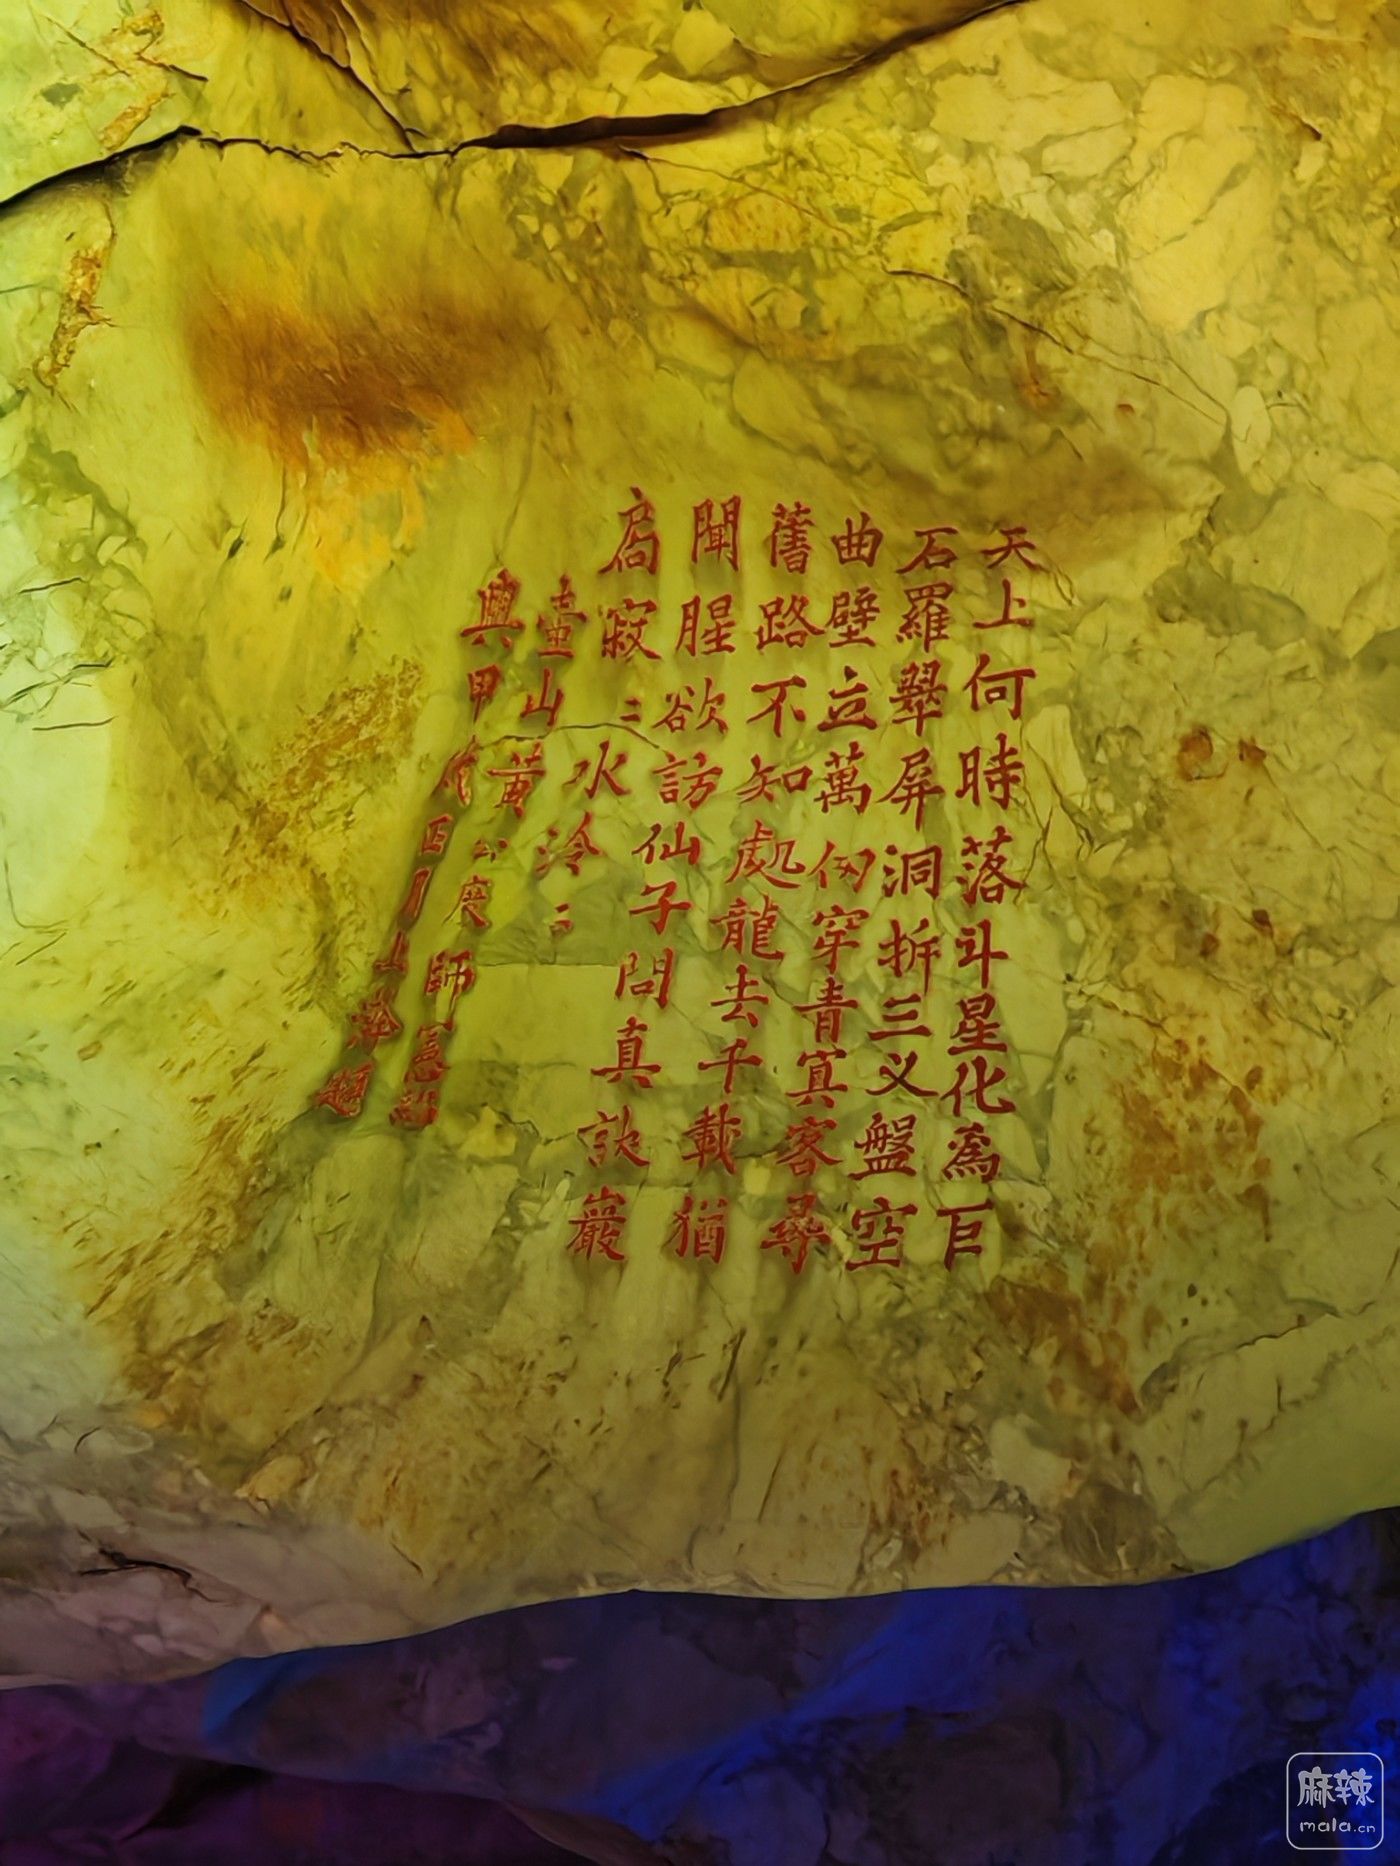 天上何時落斗星化爲巨
石羅翠屏洞拆三义盤空
曲壁立萬仞穿青寘客尋
舊路不知處龍去千載猶
聞腥欲訪仙子問真訣巖
扃寂〻水泠〻
壺山黃公度師憲
興甲戌四月上澣題
麻辣
mala.cn